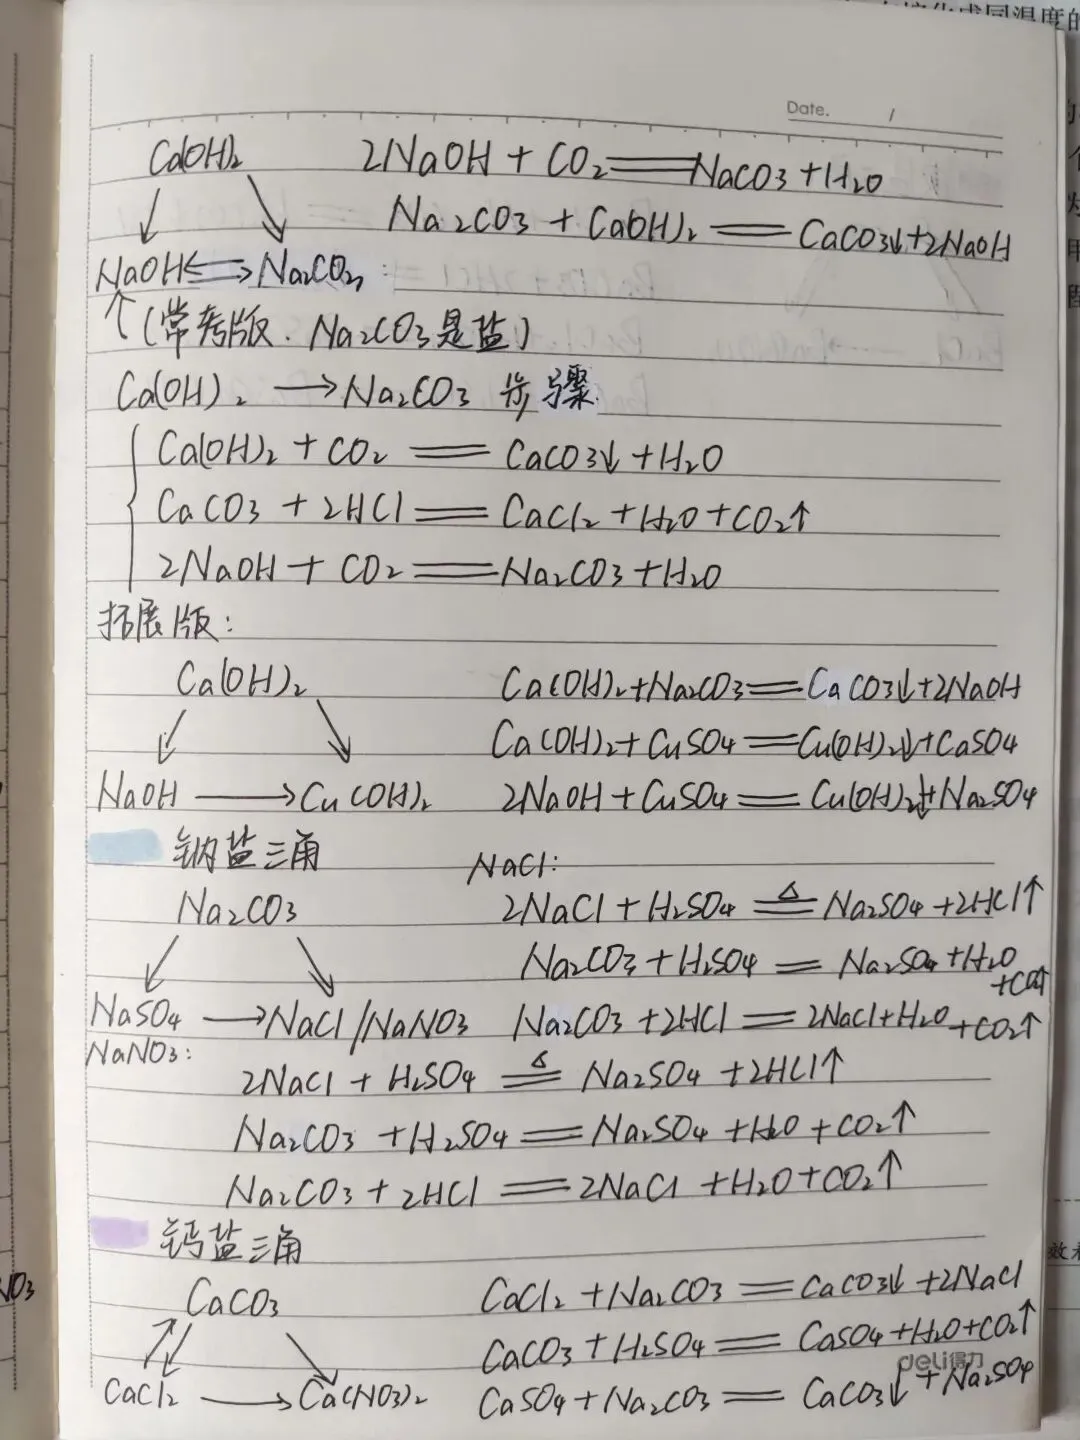 Date. /
Ca(OH)₂ 2NaOH + CO₂ ══ NaCO₃ + H₂O
Na₂CO₃ + Ca(OH)₂ ══ CaCO₃↓ + 2NaOH
NaOH ⇌ Na₂CO₃ :
↑(常考版. Na₂CO₃是盐)
Ca(OH)₂ → Na₂CO₃ 步骤.
Ca(OH)₂ + CO₂ ══ CaCO₃↓ + H₂O
CaCO₃ + 2HCl ══ CaCl₂ + H₂O + CO₂↑
2NaOH + CO₂ ══ Na₂CO₃ + H₂O
拓展版:
Ca(OH)₂ Ca(OH)₂ + Na₂CO₃ ══ CaCO₃↓ + 2NaOH
Ca(OH)₂ + CuSO₄ ══ Cu(OH)₂↓ + CaSO₄
NaOH → Cu(OH)₂ 2NaOH + CuSO₄ ══ Cu(OH)₂↓ + Na₂SO₄
钠盐三角 NaCl:
Na₂CO₃ 2NaCl + H₂SO₄ ══△ Na₂SO₄ + 2HCl↑
Na₂CO₃ + H₂SO₄ ══ Na₂SO₄ + H₂O + CO₂↑
NaSO₄ → NaCl/NaNO₃ Na₂CO₃ + 2HCl ══ 2NaCl + H₂O + CO₂↑
NaNO₃:
2NaCl + H₂SO₄ ══△ Na₂SO₄ + 2HCl↑
Na₂CO₃ + H₂SO₄ ══ Na₂SO₄ + H₂O + CO₂↑
Na₂CO₃ + 2HCl ══ 2NaCl + H₂O + CO₂↑
钙盐三角
CaCO₃ CaCl₂ + Na₂CO₃ ══ CaCO₃↓ + 2NaCl
CaCO₃ + H₂SO₄ ══ CaSO₄ + H₂O + CO₂↑
deli得力
CaCl₂ → Ca(NO₃)₂ CaSO₄ + Na₂CO₃ ══ CaCO₃↓ + Na₂SO₄